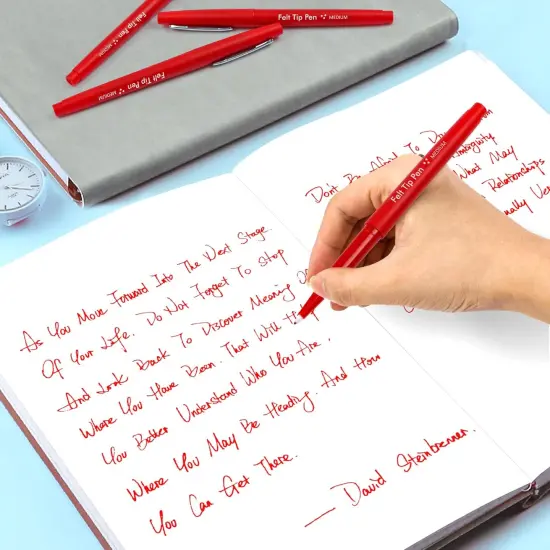 Felt Tip Pen MEDIUM
Felt Tip Pen MEDIUM
Felt Tip Pen MEDIUM
Felt Tip Pen MEDIUM
As You Move Forward Into The Next Stage
Of Your Life. Do Not Forget To Stop
And Look Back To Discover Meaning Of
Where You Have Been. That Will Help
You Better Understand Who You Are,
Where You May Be Heading. And How
You Can Get There.
— David Steinbrenner.
Don't Be To
Ambiguity
What May
Relationships